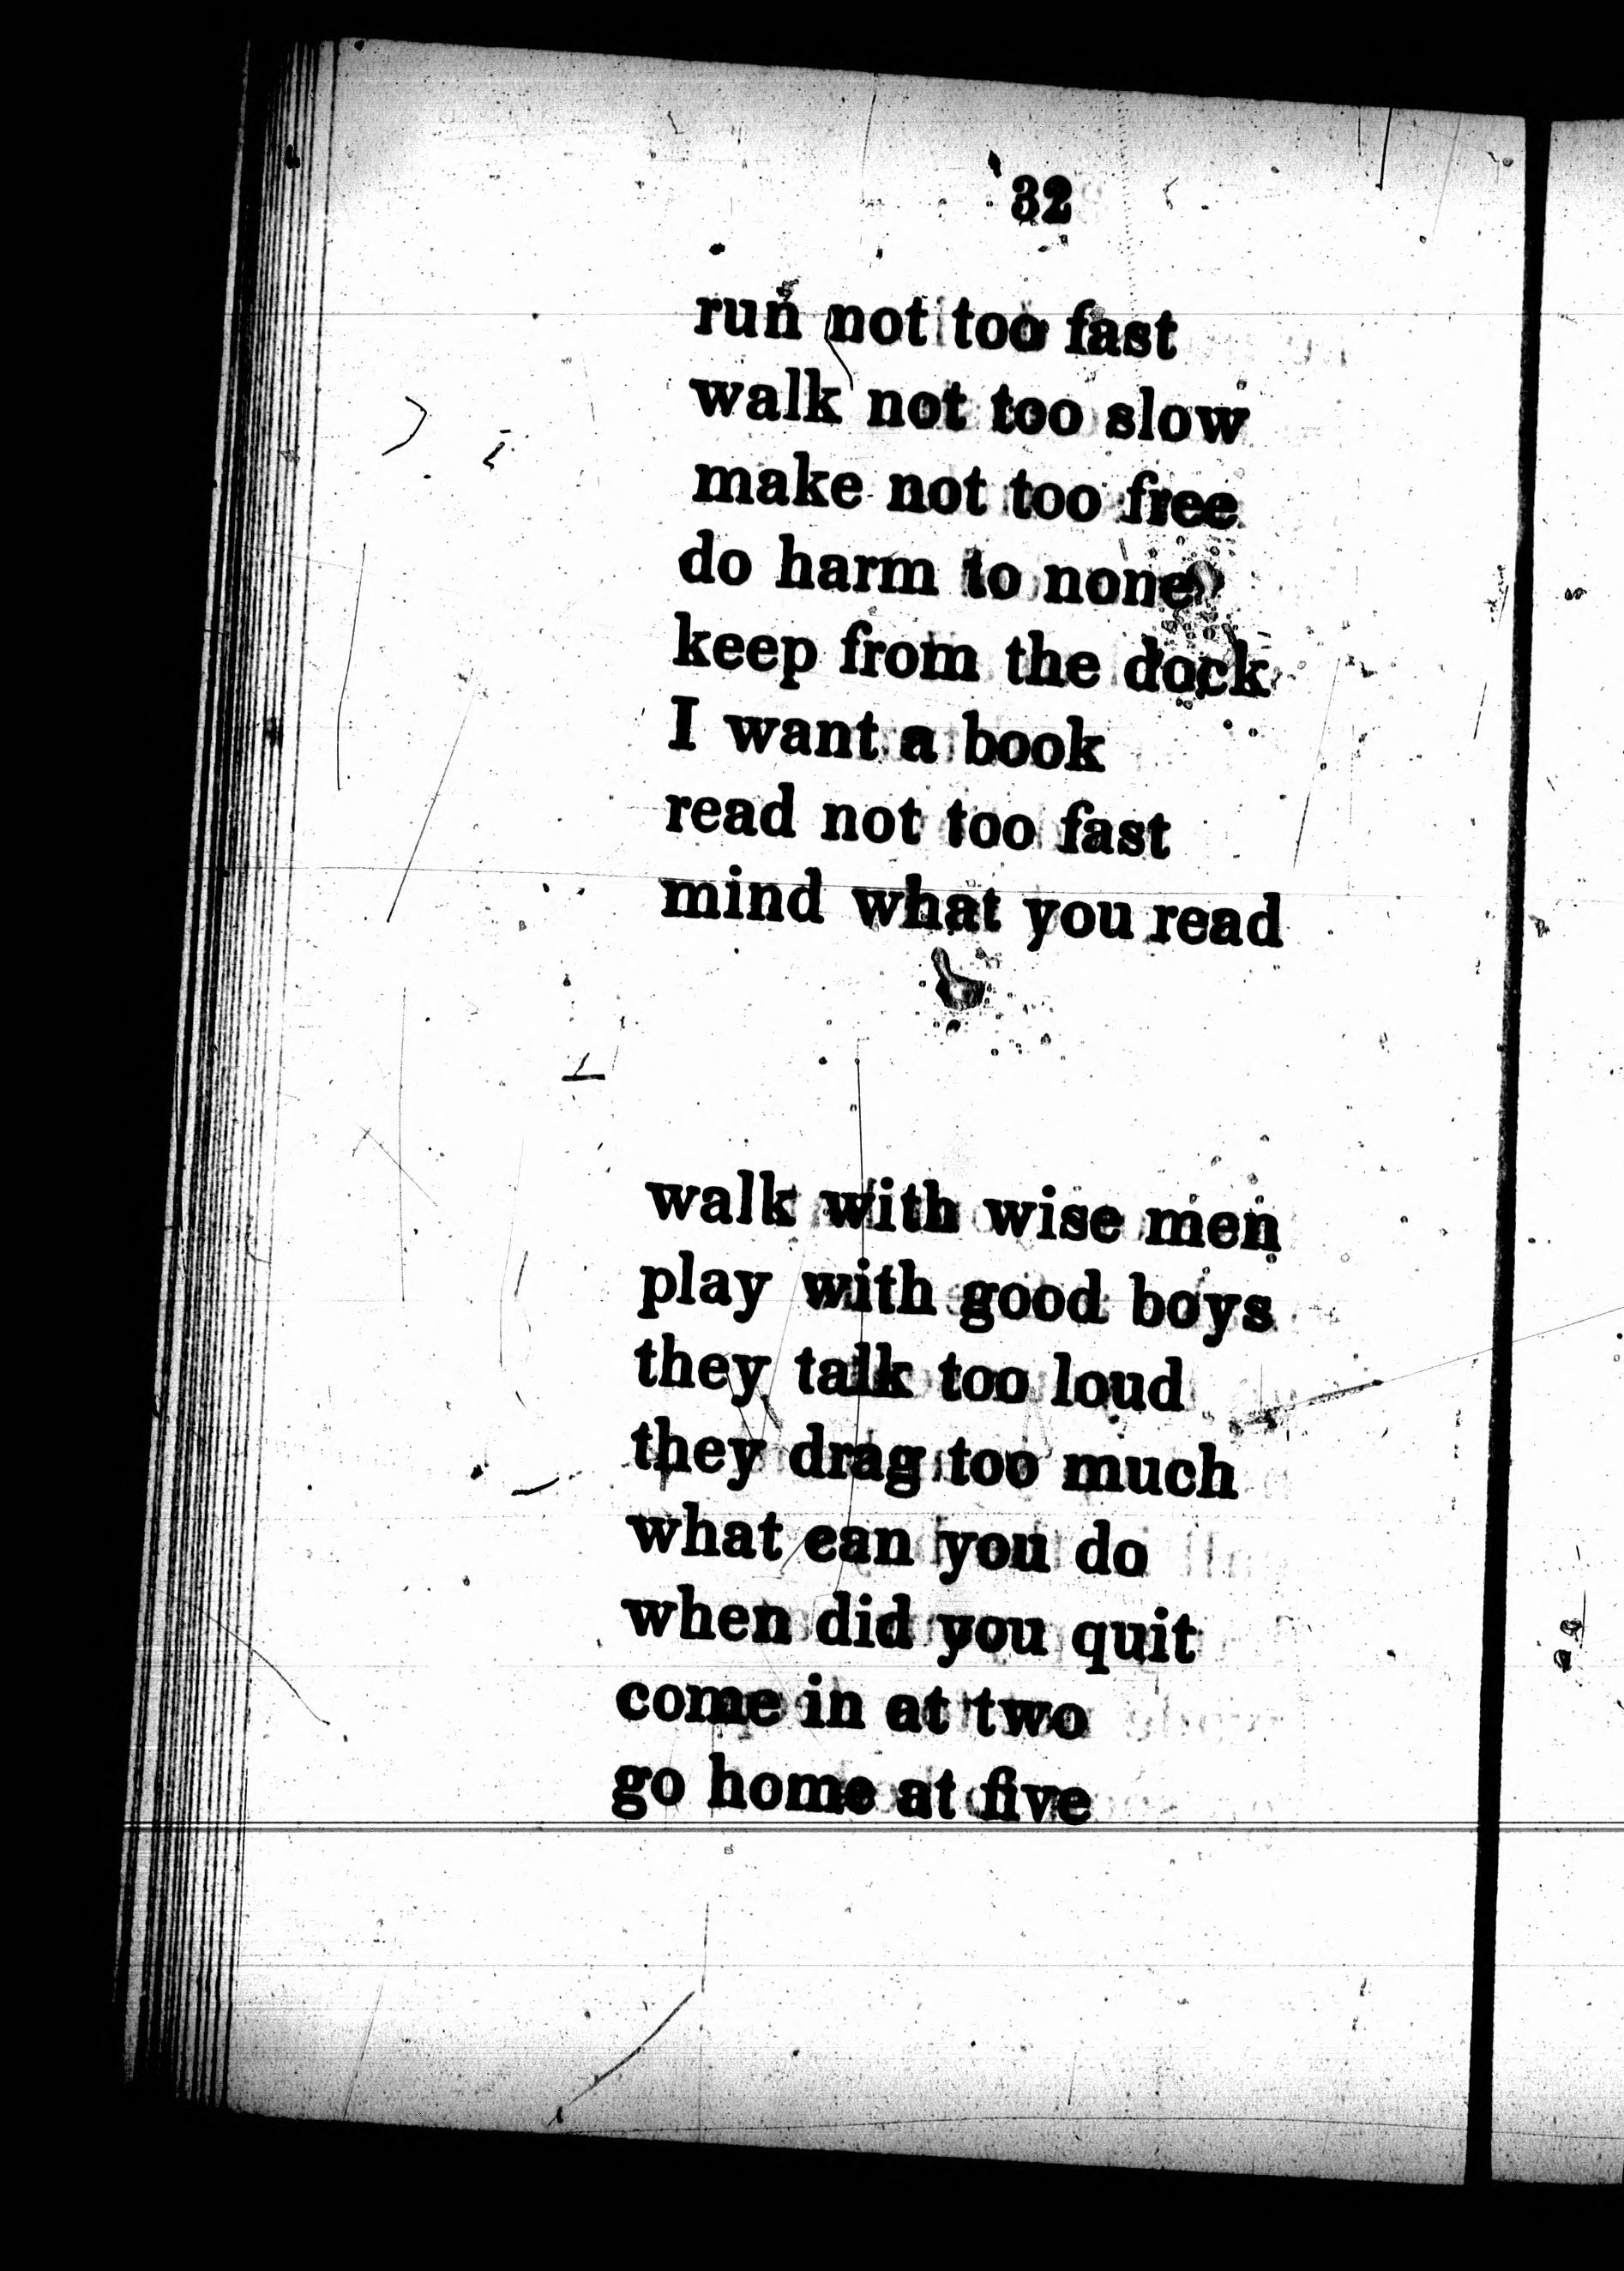 32
run not too fast
walk not too slow
make not too free
do harm to none
keep from the dock
I want a book
read not too fast
mind what you read
walk with wise men
play with good boys
they talk too loud
they drag too much
what can you do
when did you quit
come in at two
go home at five